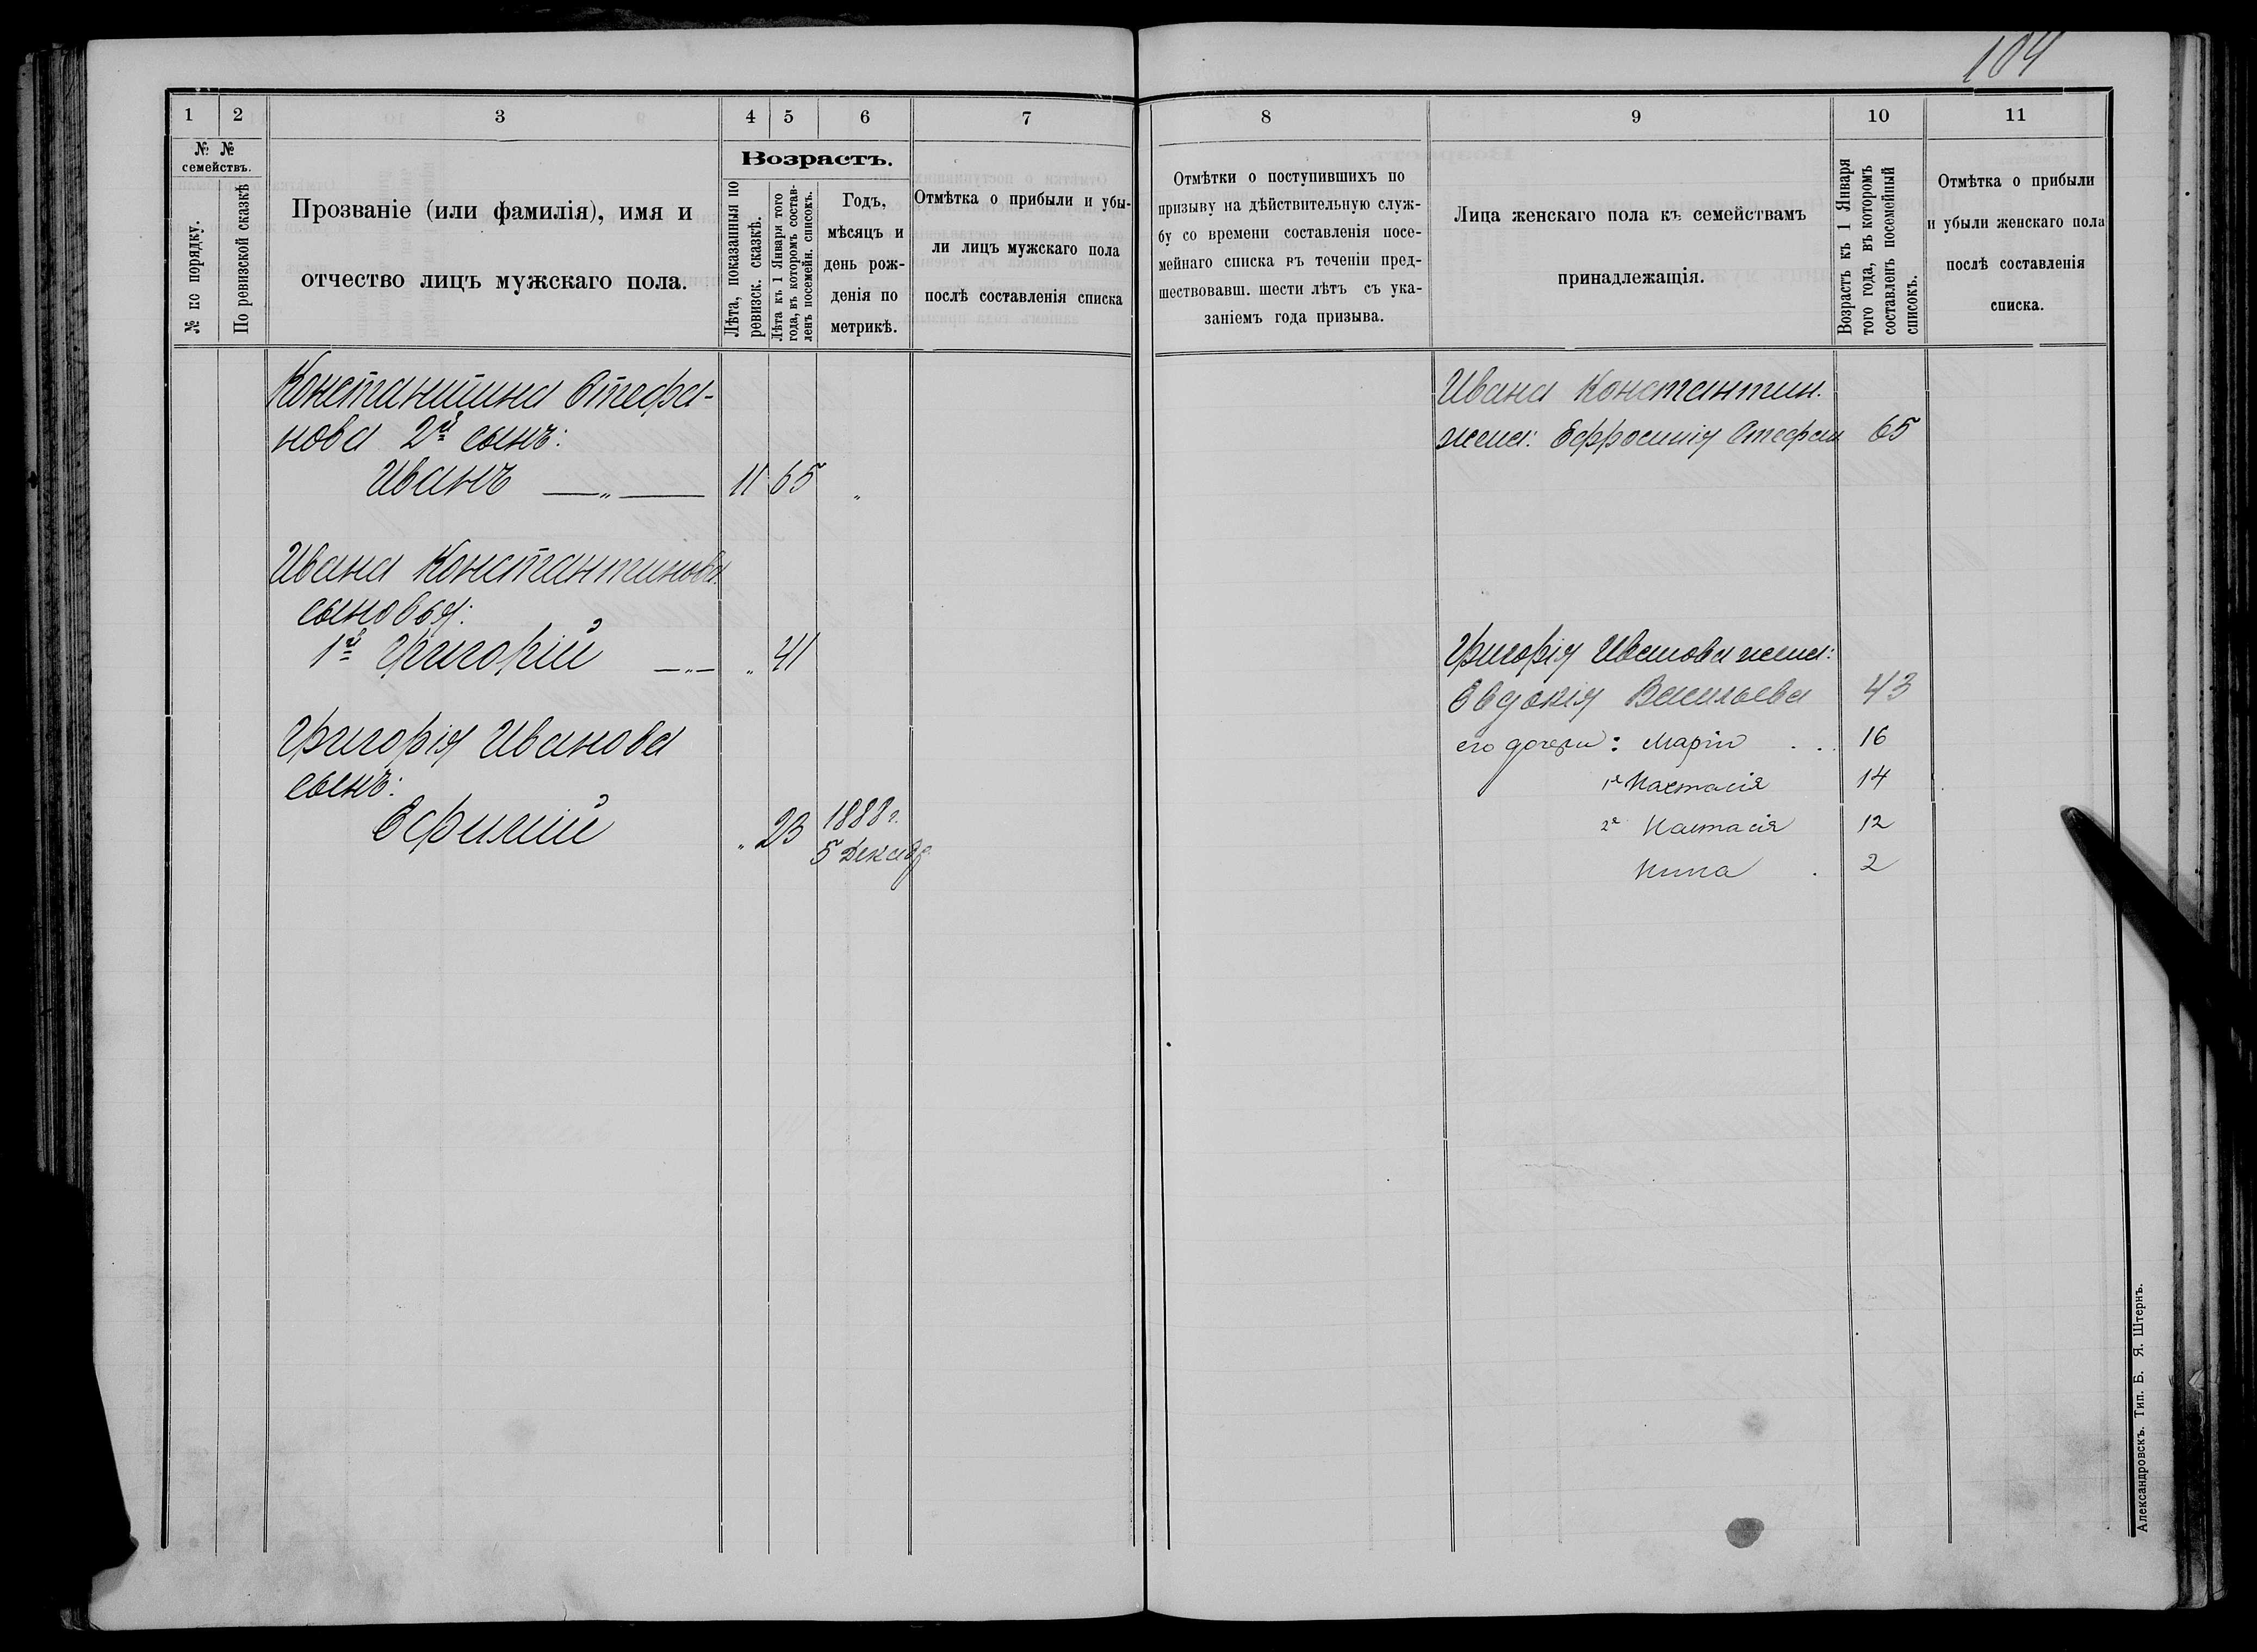 104
1 2 3 4 5 6 7
№ №
семействъ.
№ по порядку.
По ревизской сказкѣ
Прозваніе (или фамилія), имя и
отчество лицъ мужскаго пола.
Возрастъ.
Лѣта, показанныя по
ревизск. сказкѣ.
Лѣта къ 1 Января того
года, въ которомъ состав-
ленъ посемейн. списокъ.
Годъ,
мѣсяцъ и
день рож-
денія по
метрикѣ.
Отмѣтка о прибыли и убы-
ли лицъ мужскаго пола
послѣ составленія списка
Константина Стефа-
нова 2й сынъ:
Иванъ —„— 11 65 „
Ивана Константинова
сыновья:
1й Григорій —„— „ 41
Григорія Иванова
сынъ:
Ефимій „ 23 1888 г.
5 Декабр.
8 9 10 11
Отмѣтки о поступившихъ по
призыву на дѣйствительную служ-
бу со времени составленія посе-
мейнаго списка въ теченіи пред-
шествовавш. шести лѣтъ съ ука-
заніемъ года призыва.
Лица женскаго пола къ семействамъ
принадлежащія.
Возрастъ къ 1 Января
того года, въ которомъ
составленъ посемейный
списокъ.
Отмѣтка о прибыли
и убыли женскаго пола
послѣ составленія
списка.
Ивана Константин.
жена: Ефросинія Стефан 65
Григорія Иванова жена:
Евдокія Васильева 43
его дочери: Марія . . 16
1я Настасія 14
2я Настасія 12
Нина . 2
Александровскъ. Тип. Б. Я. Штернъ.